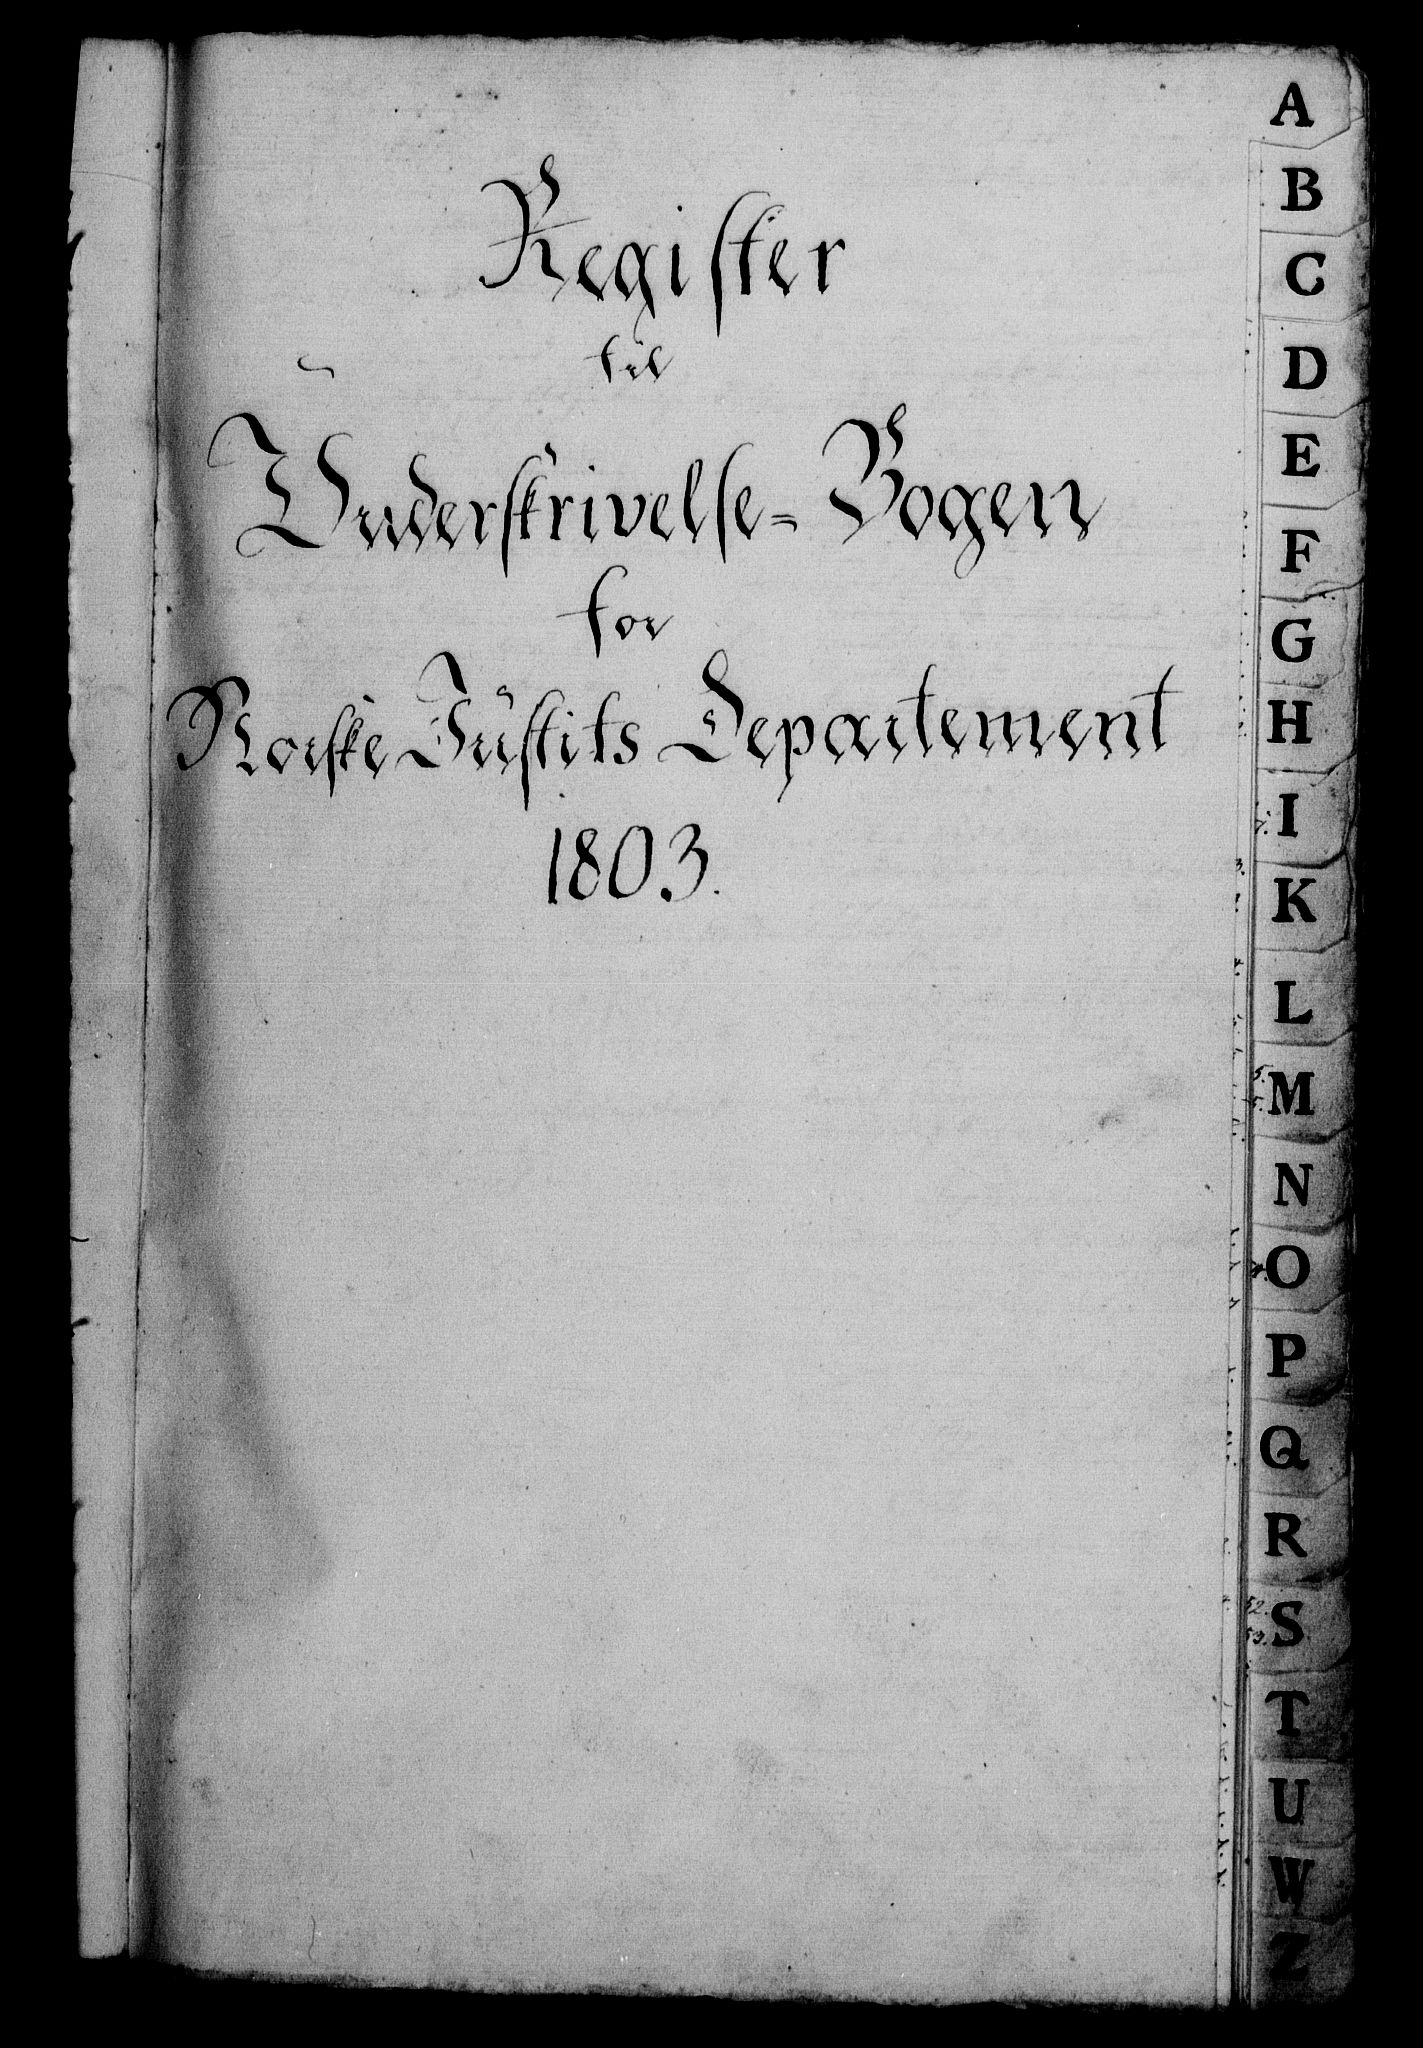 Register
til
Underskrivelse=Bogen
for
Norske Justits Departement
1803.
A
B
C
D
E
F
G
H
I
K
L
M
N
O
P
Q
R
S
T
U
W
Z